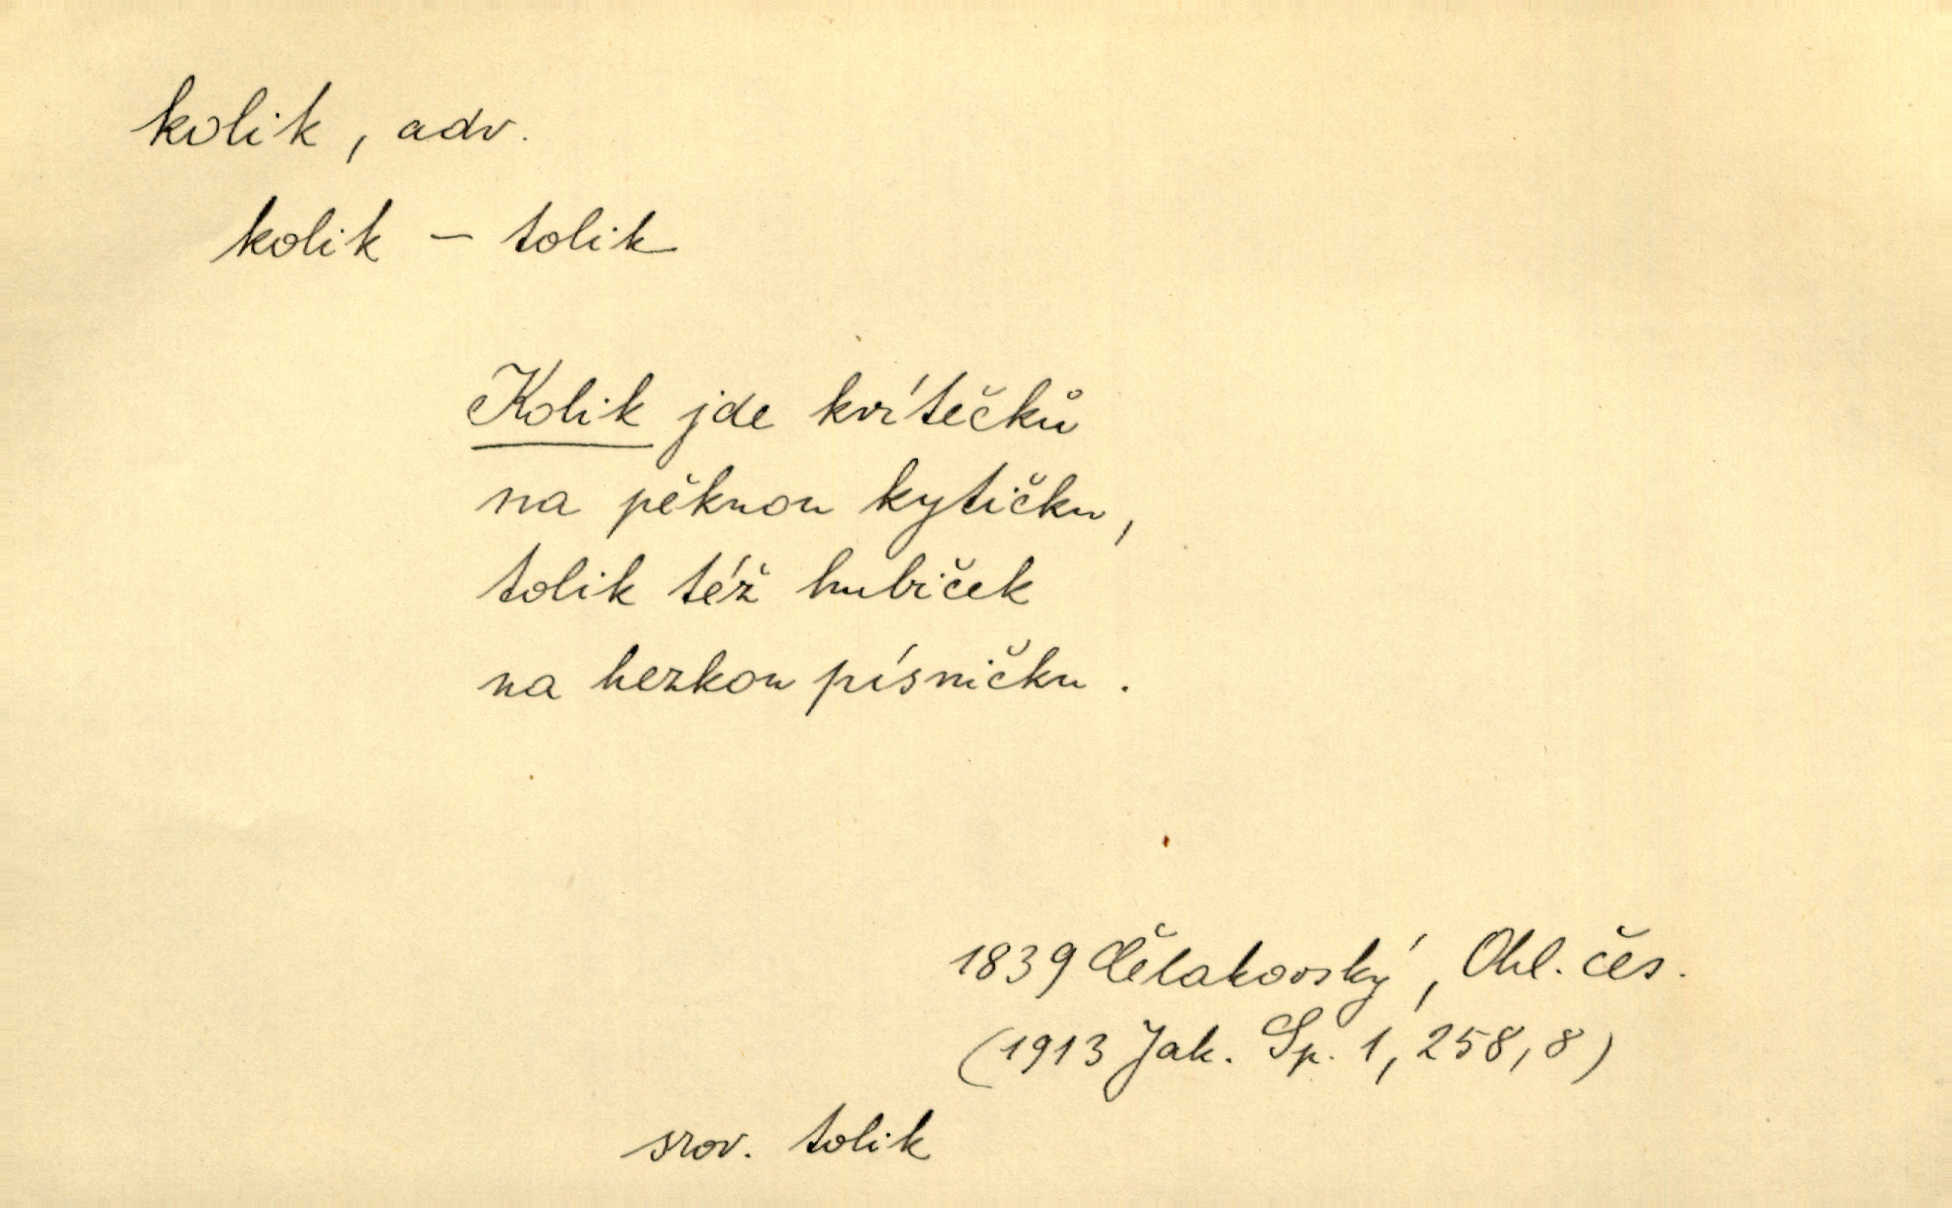 kolik, adv.
kolik – tolik
Kolik jde kvítečků
na pěknou kytičku,
tolik též hubiček
na hezkou písničku.
1839 Čelakovský, Ohl. čes.
(1913 Jak. Sp. 1, 258, 8)
srov. tolik